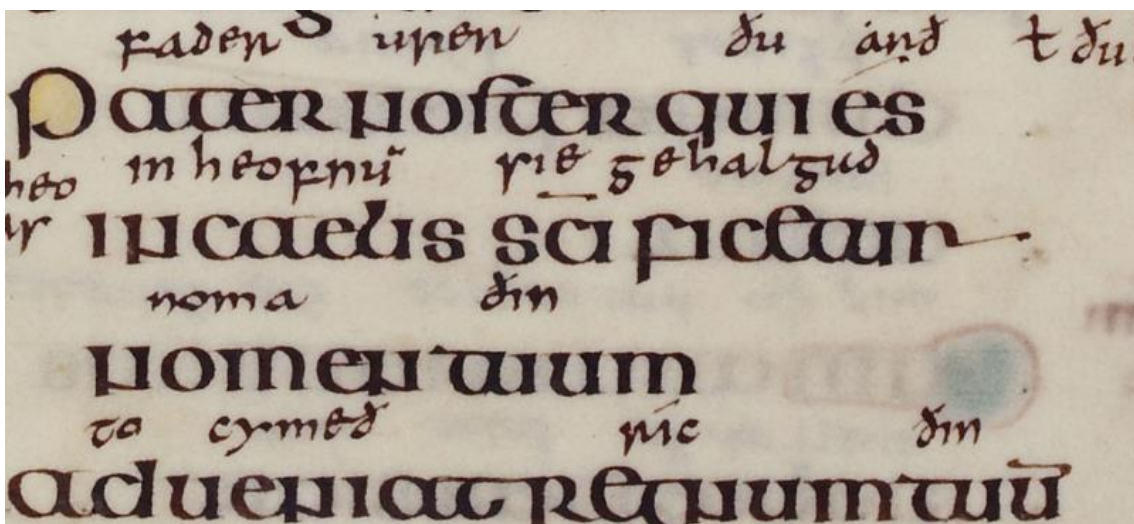 fader uren ðu arð ɫ ðu
Pater noster qui es
in heofnū sie gehalgud
in caelis sc̄ificetur
noma ðin
nomen tuum
to cymeð ric ðin
adueniat regnum tuū